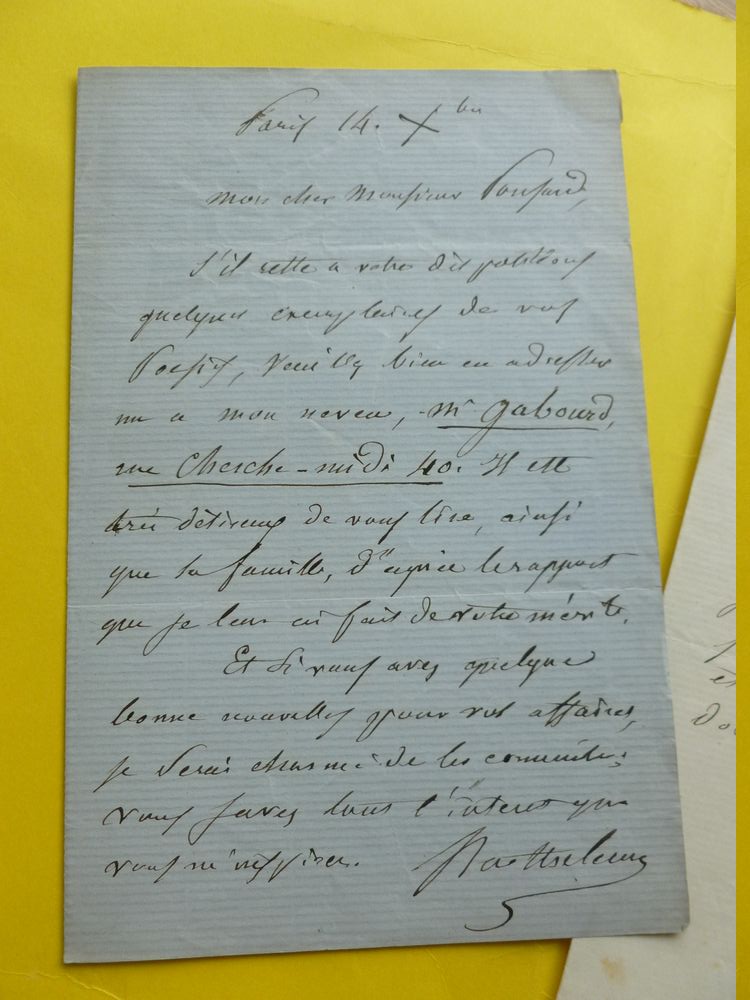 Paris 14. Xbre
mon cher Monsieur Ponsard,
S'il reste a votre dispositions
quelques exemplaires de vos
Poesies, veuillez bien en adresser
un a mon neveu, Mr Gabourd,
rue Cherche-midi 40. Il est
très désireux de vous lire, ainsi
que sa famille, d'après le rapport
que je leur ai fait de votre mérite.
Et si vous avez quelque
bonne nouvelles pour vos affaires,
je serai charmé de les connaitre;
vous savez tout l'interet que
vous m'inspirez. Barthelemy